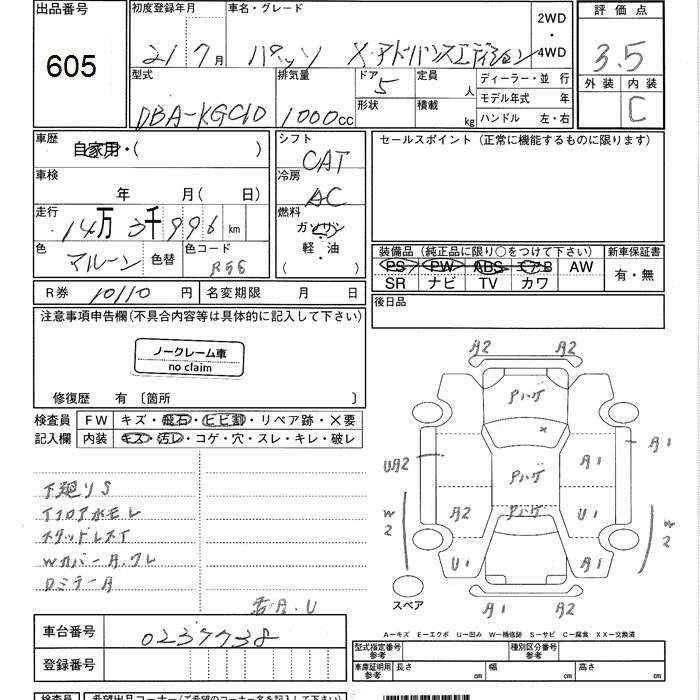 出品番号 初度登録年月 車名・グレード 2WD・4WD 評価点
605 21年7月 パッソ X・アドバンスエディション 3.5
型式 排気量 ドア 定員 人 ディーラー・並行 外装 内装
DBA-KGC10 1000cc 5 形状 積載 kg モデル年式 年 C
ハンドル 左・右
車歴 自家用・( ) シフト セールスポイント (正常に機能するものに限ります)
CAT
車検 年 月(日) 冷房
AC
走行 14万3千996km 燃料
ガソリン
軽・油
( )
色 マルーン 色替 色コード R56
装備品 (純正品に限り○をつけて下さい) 新車保証書
PS PW ABS エアB AW 有・無
SR ナビ TV カワ
R券 10110円 名変期限 月 日 後日品
注意事項申告欄(不具合内容等は具体的に記入して下さい)
ノークレーム車
no claim
修復歴 有 〔箇所 〕
検査員 FW キズ・飛石・ヒビ割・リペア跡・×要
記入欄 内装 キズ・汚レ・コゲ・穴・スレ・キレ・破レ
下廻りS
Wカバー A.ワレ
Dミラー A
A2
Pハゲ
×
A1
UA2 Pハゲ A1
W2 A2 Pハゲ U1 W2
U1 A1
スペア A1 A2
車台番号 0237738
登録番号
A―キズ E―エクボ U―凹み W―補修跡 S―サビ C―腐食 XX―交換済
型式指定番号 参考 種別区分番号 参考
車庫証明用 参考 長さ cm 幅 cm 高さ cm